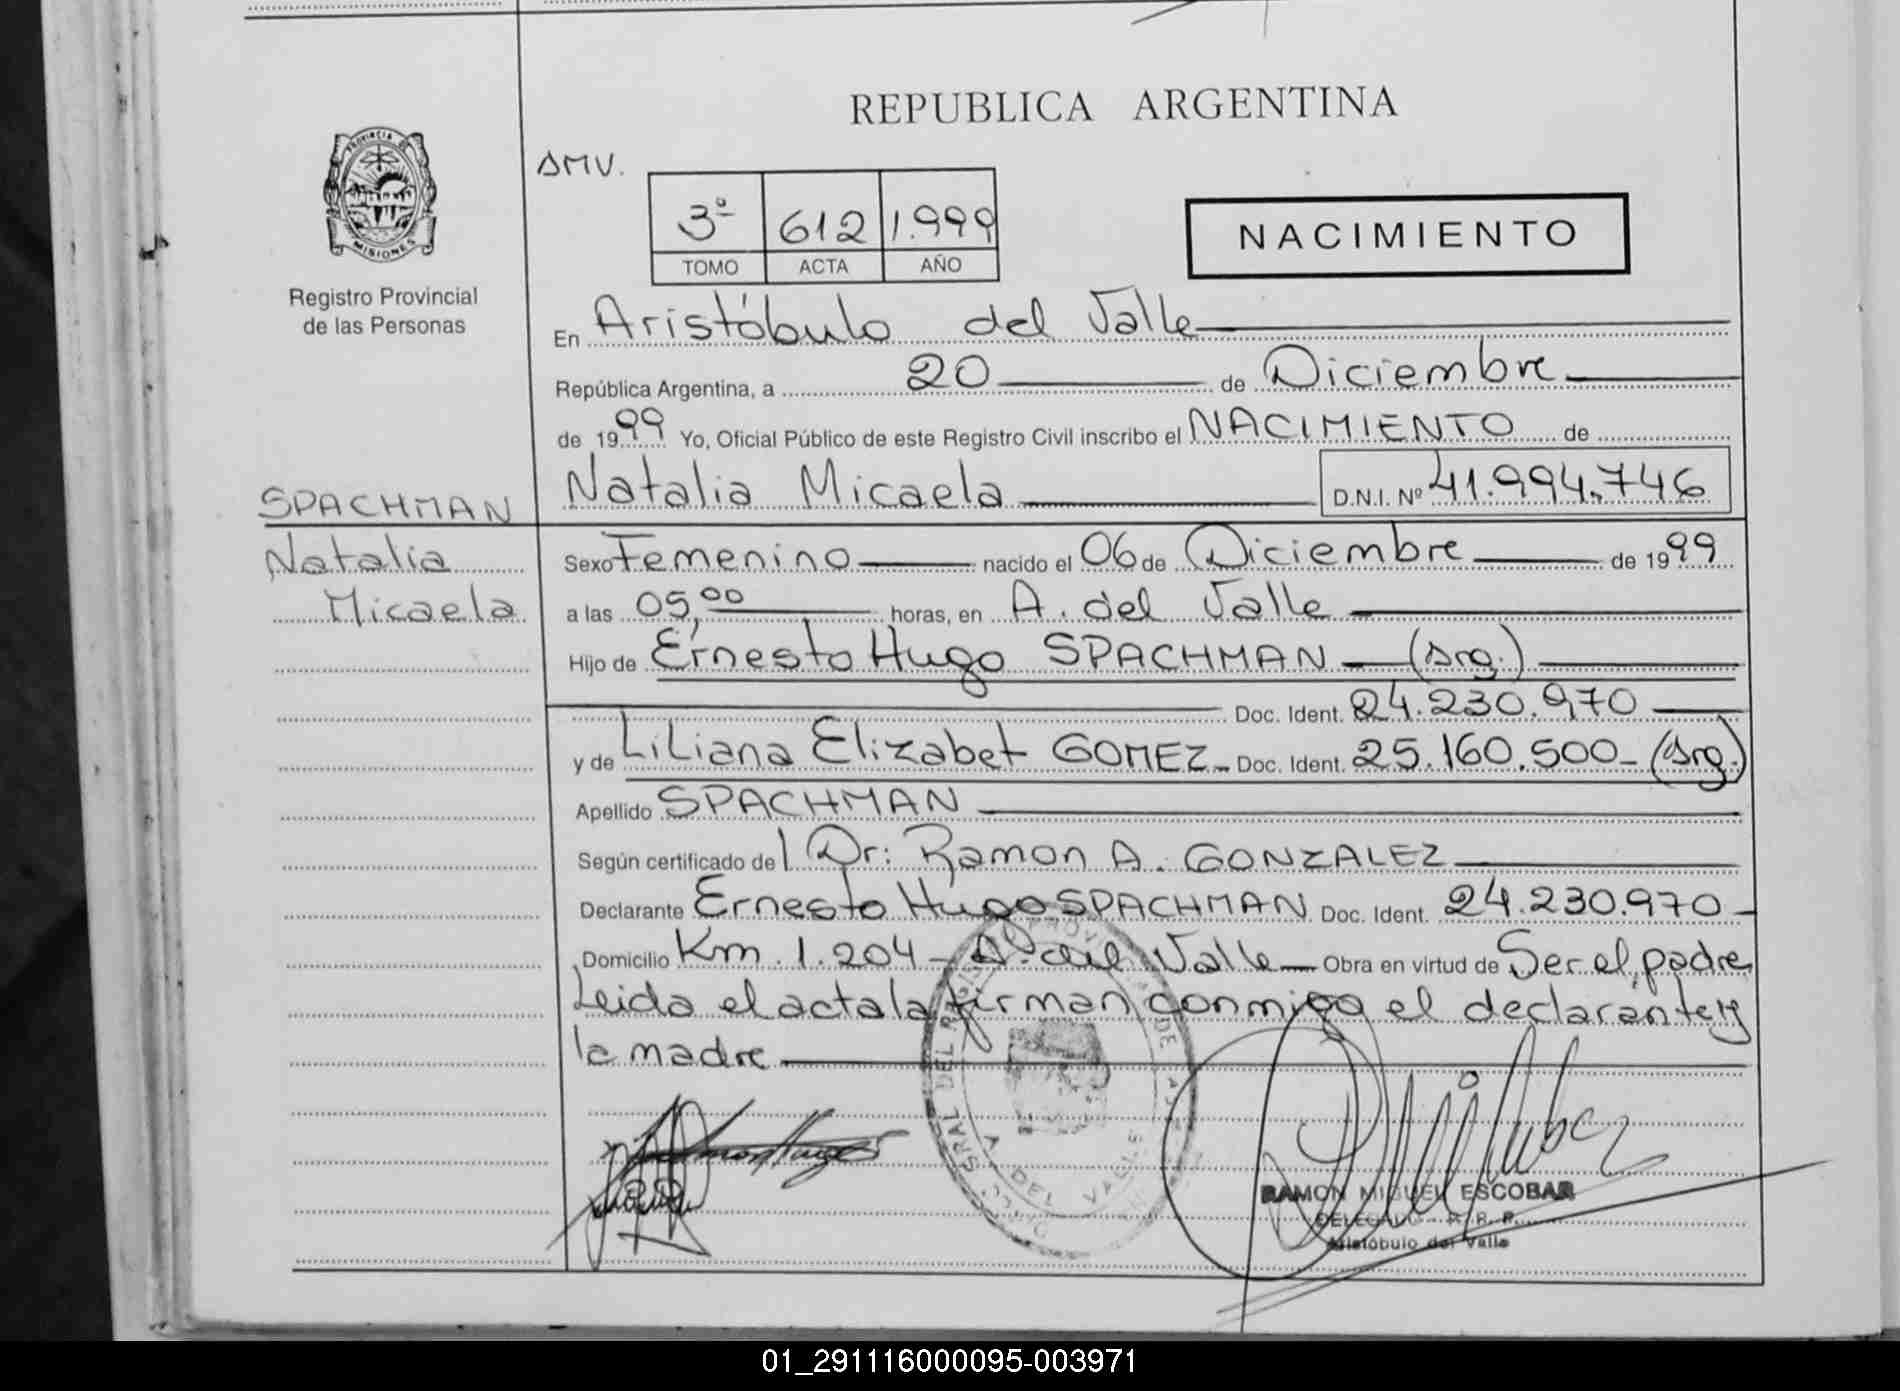 REPUBLICA ARGENTINA
PROVINCIA DE
MISIONES
Registro Provincial
de las Personas
3º 612 1.999
TOMO ACTA AÑO
NACIMIENTO
En Aristóbulo del Valle
República Argentina, a 20 de Diciembre
de 1999 Yo, Oficial Público de este Registro Civil inscribo el NACIMIENTO de
SPACHMAN
Natalia Micaela D.N.I. Nº 41.994.746
Natalia
Micaela
Sexo Femenino nacido el 06 de Diciembre de 1999
a las 05,00 horas, en A. del Valle
Hijo de Ernesto Hugo SPACHMAN (Arg.)
Doc. Ident. 24.230.970
y de Liliana Elizabet GOMEZ Doc. Ident. 25.160.500 (Arg.)
Apellido SPACHMAN
Según certificado del Dr: Ramon A. GONZALEZ
Declarante Ernesto Hugo SPACHMAN Doc. Ident. 24.230.970
Domicilio Km. 1.204 - Aº. del Valle Obra en virtud de Ser el padre
Leida el acta la firman conmigo el declarante y
la madre
A. DEL VALLE
RAMON MIGUEL ESCOBAR
DELEGADO R. P. P.
Aristóbulo del Valle
01_291116000095-003971